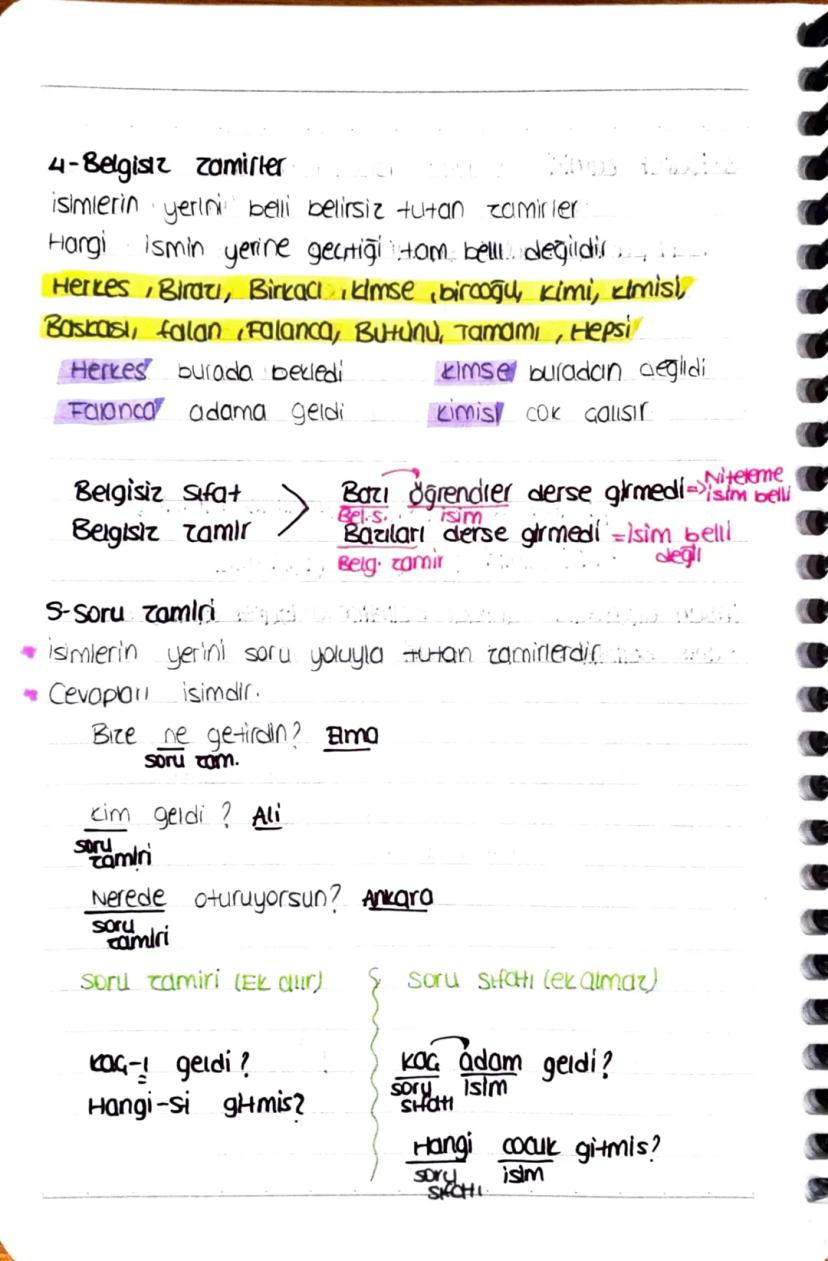 4-Belgisiz zamirler
isimlerin yerini belli belirsiz tutan zamirler
Hangi ismin yerine geçtiği tam belli değildir
Herkes, Birazı, Birkacı, kimse, bircoğu, kimi, kimisi,
Baskası, falan, Falanca, Bütünü, Tamamı, Hepsi
Herkes burada bekledi kimse buradan değildi
Falanca adama geldi kimisi cok calısır
Belgisiz sıfat > Bazı öğrenciler derse girmedi => Niteleme isim belli
Bel.s. isim
Belgisiz zamir Bazıları derse girmedi = isim belli değil
Belg. zamir
5-Soru zamiri
isimlerin yerini soru yoluyla tutan zamirlerdir.
Cevapları isimdir.
Bize ne getirdin? Elma
soru zam.
kim geldi? Ali
soru zamiri
Nerede oturuyorsun? Ankara
soru zamiri
soru zamiri (Ek alır) soru sıfatı (ek almaz)
kaç-ı geldi? kaç adam geldi?
soru sıfatı isim
Hangi-si gitmis?
Hangi cocuk gitmis?
soru sıfatı isim